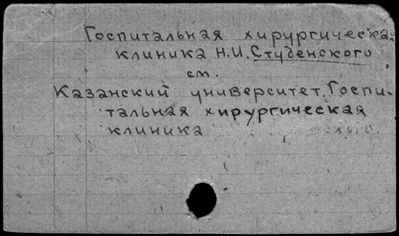 Госпитальная хирургическая
клиника Н.И. Студенского
см.
Казанский университет. Госпи-
тальная хирургическая
клиника